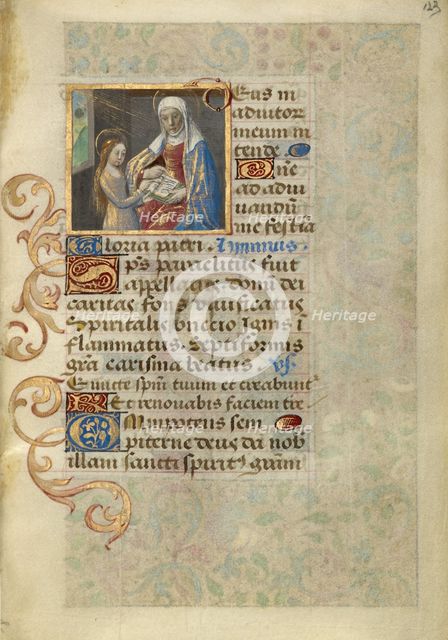 123
Deus in
adiutor
meum in
tende
Dne
ad adiu
uandum
me festia
Gloria patri. Ymnus.
Sps paraclitus fuit
appellatus donum dei
caritas fons viuificatus
Spiritalis unccio Ignis i
flammatus Septiformis
gra carisma beatus vs.
Emitte spm tuum et creabunt
Et renouabis faciem tre
Omnipotens sem
piterne deus da nob
illam sancti spiritus gram
Heritage
Heritage
Heritage
Heritage